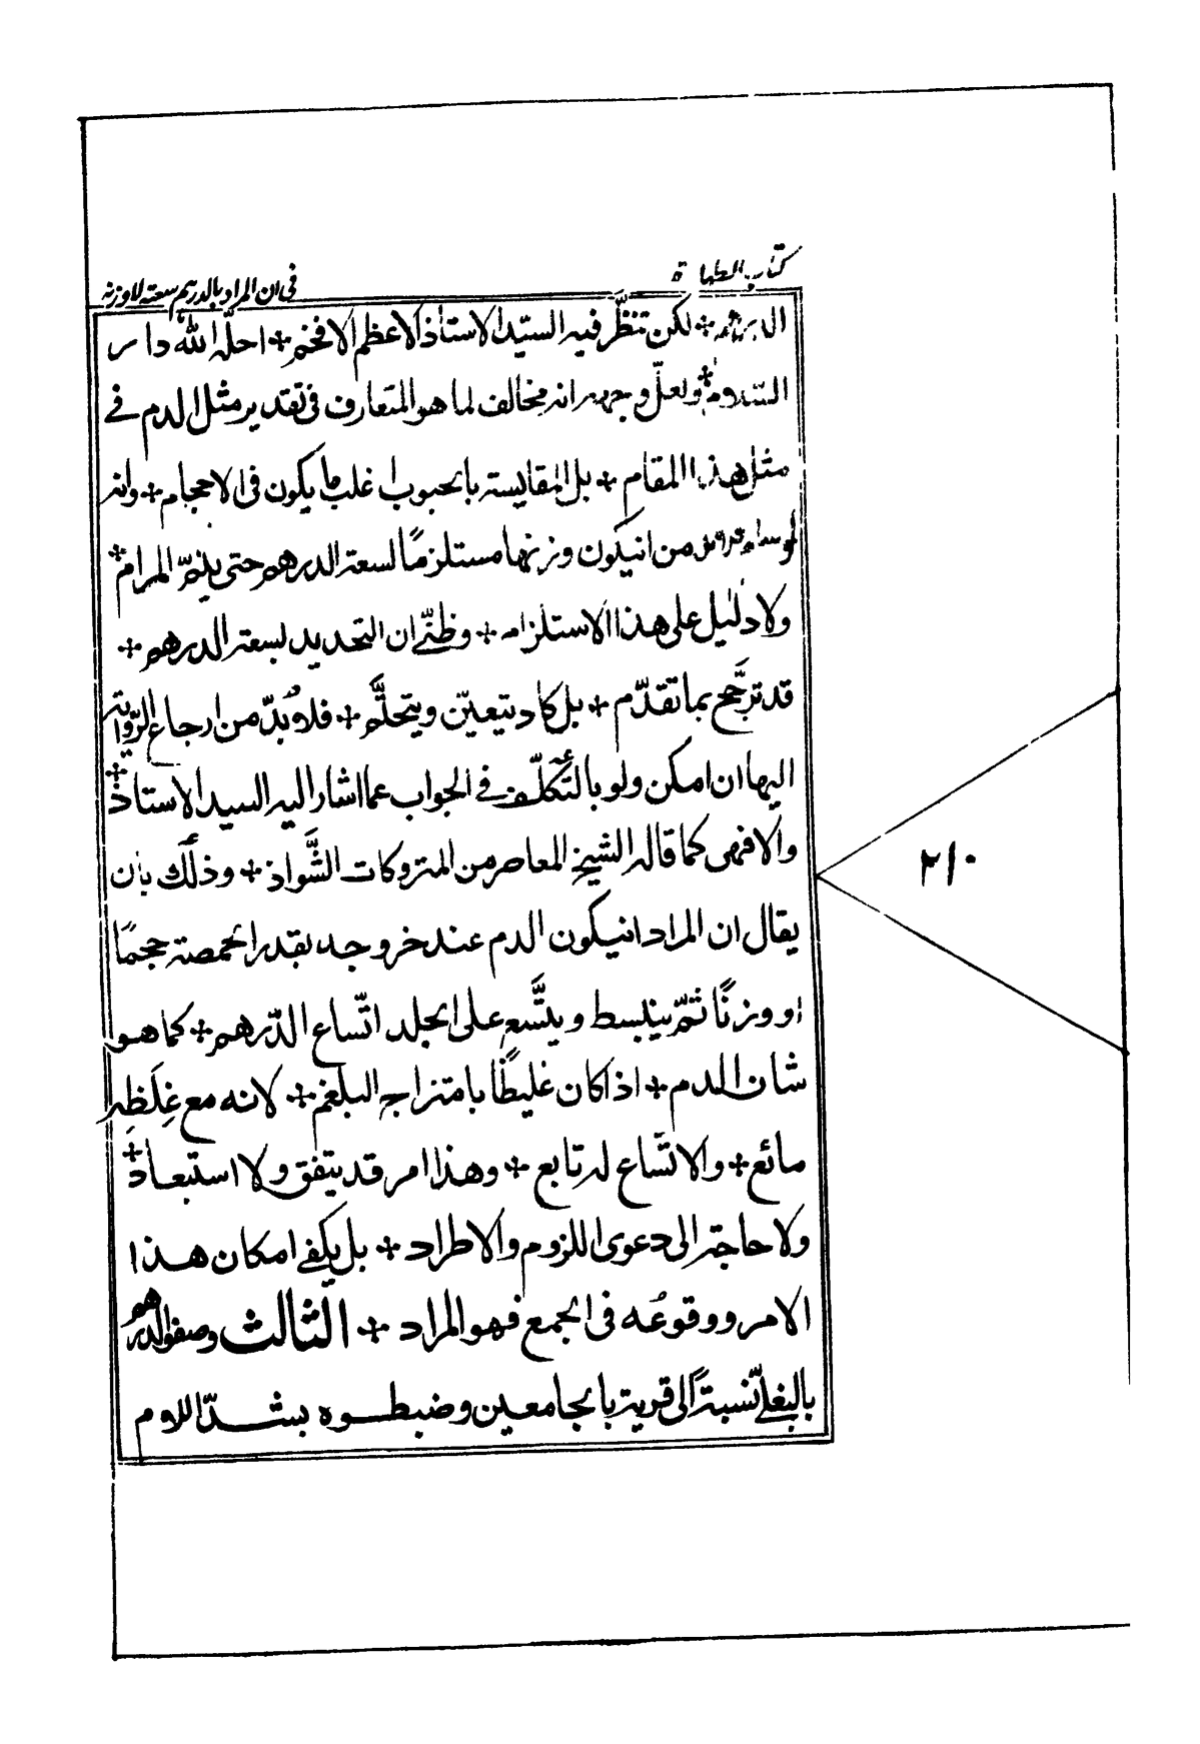 كتاب الطهارة
في ان المراد بالدرهم سعته لا وزنه
لكن تنظّر فيه السيّد الاستاذ الاعظم الافخم + احلّه الله دار
السلام + ولعلّ وجهه انه مخالف لما هو المتعارف في تقدير مثل الدم في
مثل هذا المقام + بل المقايسة بالحبوب اغلب ما يكون في الاحجام + وانه
من انيكون وزنها مستلزمًا لسعة الدرهم حتى يتمّ المرام +
ولا دليل على هذا الاستلزام + وظنّي ان التحديد بسعة الدرهم +
قد ترجّح بما تقدّم + بل كاد يتعيّن ويتحتّم + فلا بُدّ من ارجاع الرّواية
اليها ان امكن ولو بالتّكلّف في الجواب عما اشار اليه السيد الاستاذ +
والا فهي كما قاله الشيخ المعاصر من المتروكات الشَّواذ + وذلك بان
يقال ان المراد انيكون الدم عند خروجه بقدر الحمصة حجمًا
او وزنًا ثمّ ينبسط ويتَّسع على الجلد اتّساع الدّرهم + كما هو
شان الدم + اذا كان غليظًا بامتزاج البلغم + لانه مع غِلَظِه
مائع + والاتّساع له تابع + وهذا امر قد يتفق ولا استبعاد +
ولا حاجة الى دعوى اللزوم والاطراد + بل يكفي امكان هذا
الامر ووقوعُه في الجمع فهو المراد + الثالث وصفوا الدرهم
بالبغليّ نسبةً الى قرية بالجامعين وضبطوه بشدّ اللام
٢١٠